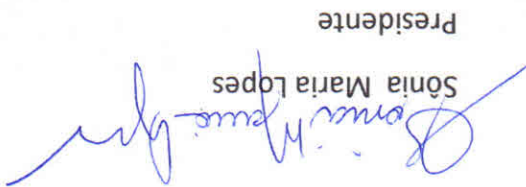 Sônia Maria Lopes
Presidente